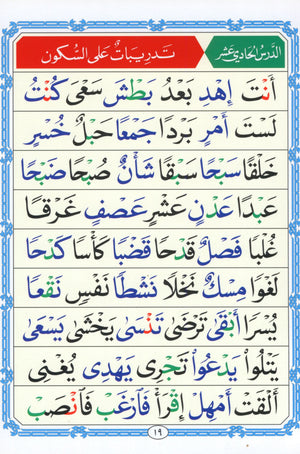 الدرس الحادي عشر
تدريبات على السكون
أَنْتَ إِهْدِ بَعْدُ بَطْشَ سَعْىَ كُنْتُ
لَسْتَ أَمْرٍ بَرْدًا جَمْعًا حَبْلٌ خُسْرٍ
خَلْقًا سَبْحًا سَبْقًا شَأْنٌ صُبْحًا ضَبْحًا
عَبْدًا عَدْنٍ عَشْرٍ عَصْفٍ غَرْقًا
غُلْبًا فَصْلٌ قَدْحًا قَضْبًا كَأْسًا كَدْحًا
لَغْوًا مِسْكٌ نَخْلًا نَشْطًا نَفْسٍ نَقْعًا
يُسْرًا أَبْقَى تَرْضَى تَنْسَى يَخْشَى يَسْعَى
يَتْلُوا يَدْعُوا تَجْرِى يَهْدِى يُغْنِى
أَلْقَتْ أَمْهِلْ اِقْرَأْ فَارْغَبْ فَانْصَبْ
١٩